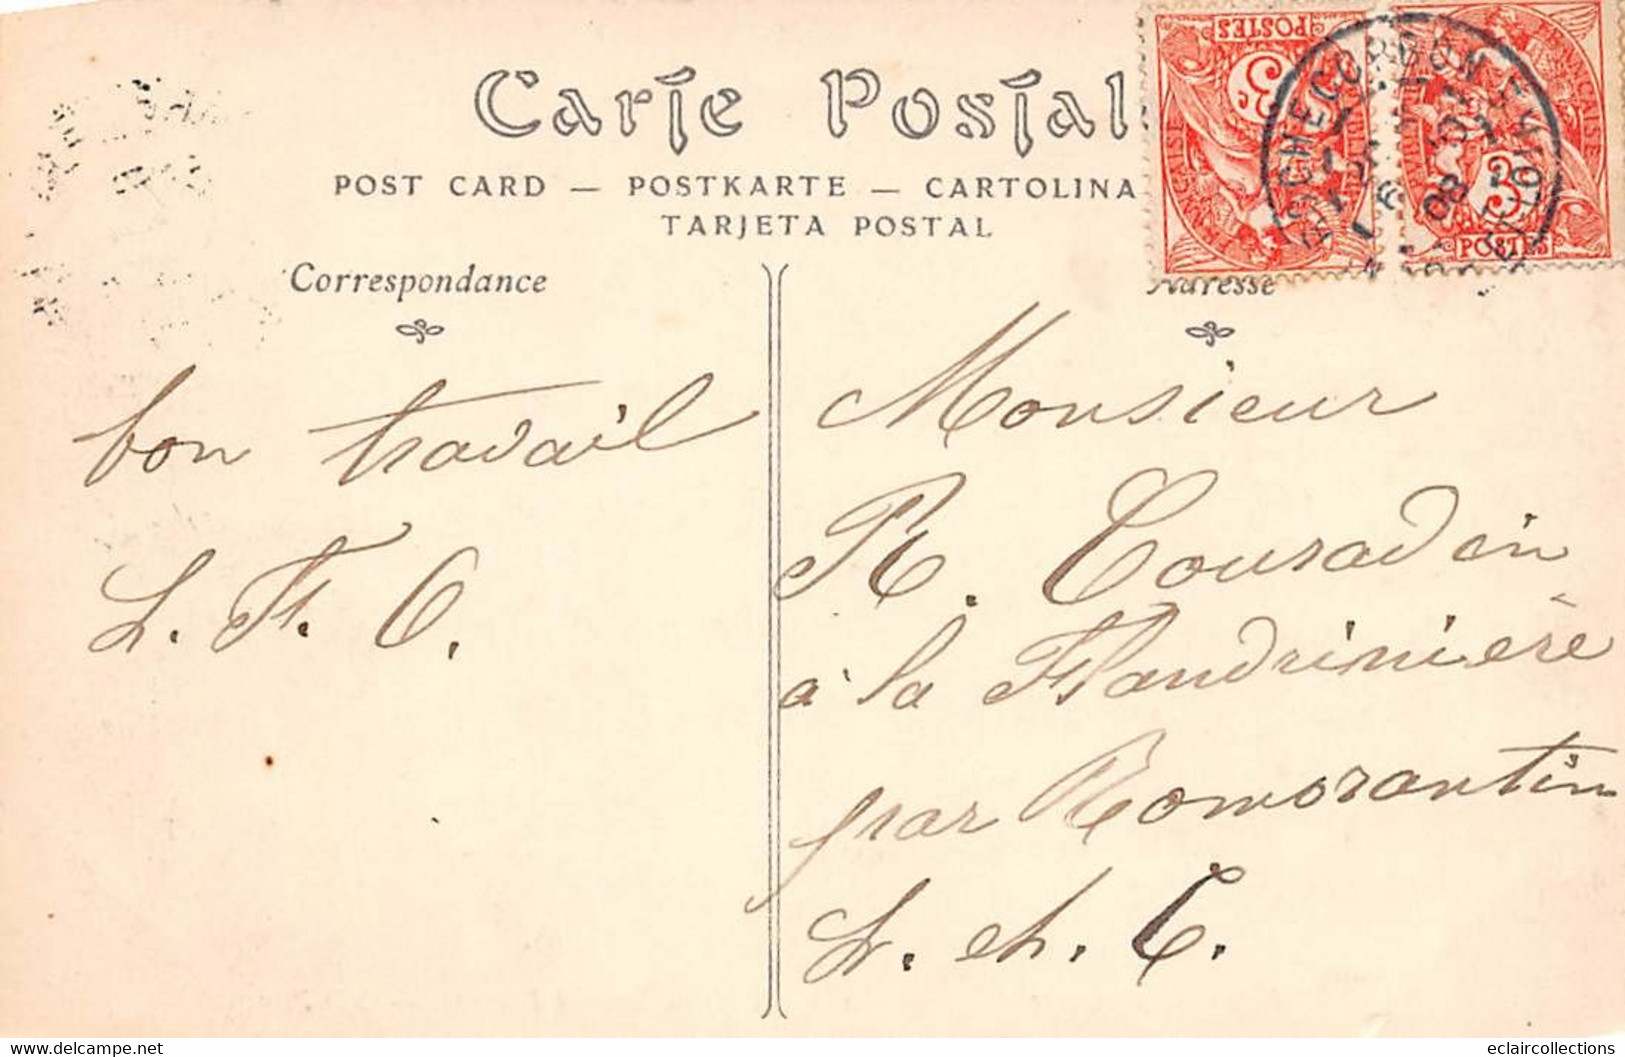 Carte Postal
POST CARD — POSTKARTE — CARTOLINA
TARJETA POSTAL
Correspondance
Adresse
POSTES
3
3
POSTES
ROCHECORBON
08
bon travail
L. Ft. O.
Monsieur
R. Touradin
à la Flandrinière
par Romorantin
L. et. C.
https://www.delcampe.net
eclaircollections